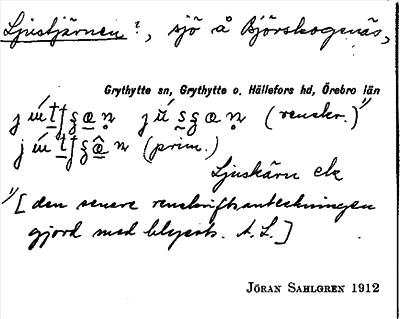 Ljustjärnen?, sjö å Björskogenäs,
Grythytte sn, Grythytte o. Hällefors hd, Örebro län
(renskr.)¹⁾
(prim.)
Ljuskärn elk
¹⁾[den senare renskriftsanteckningen
gjord med blyerts. A. L.]
JÖRAN SAHLGREN 1912